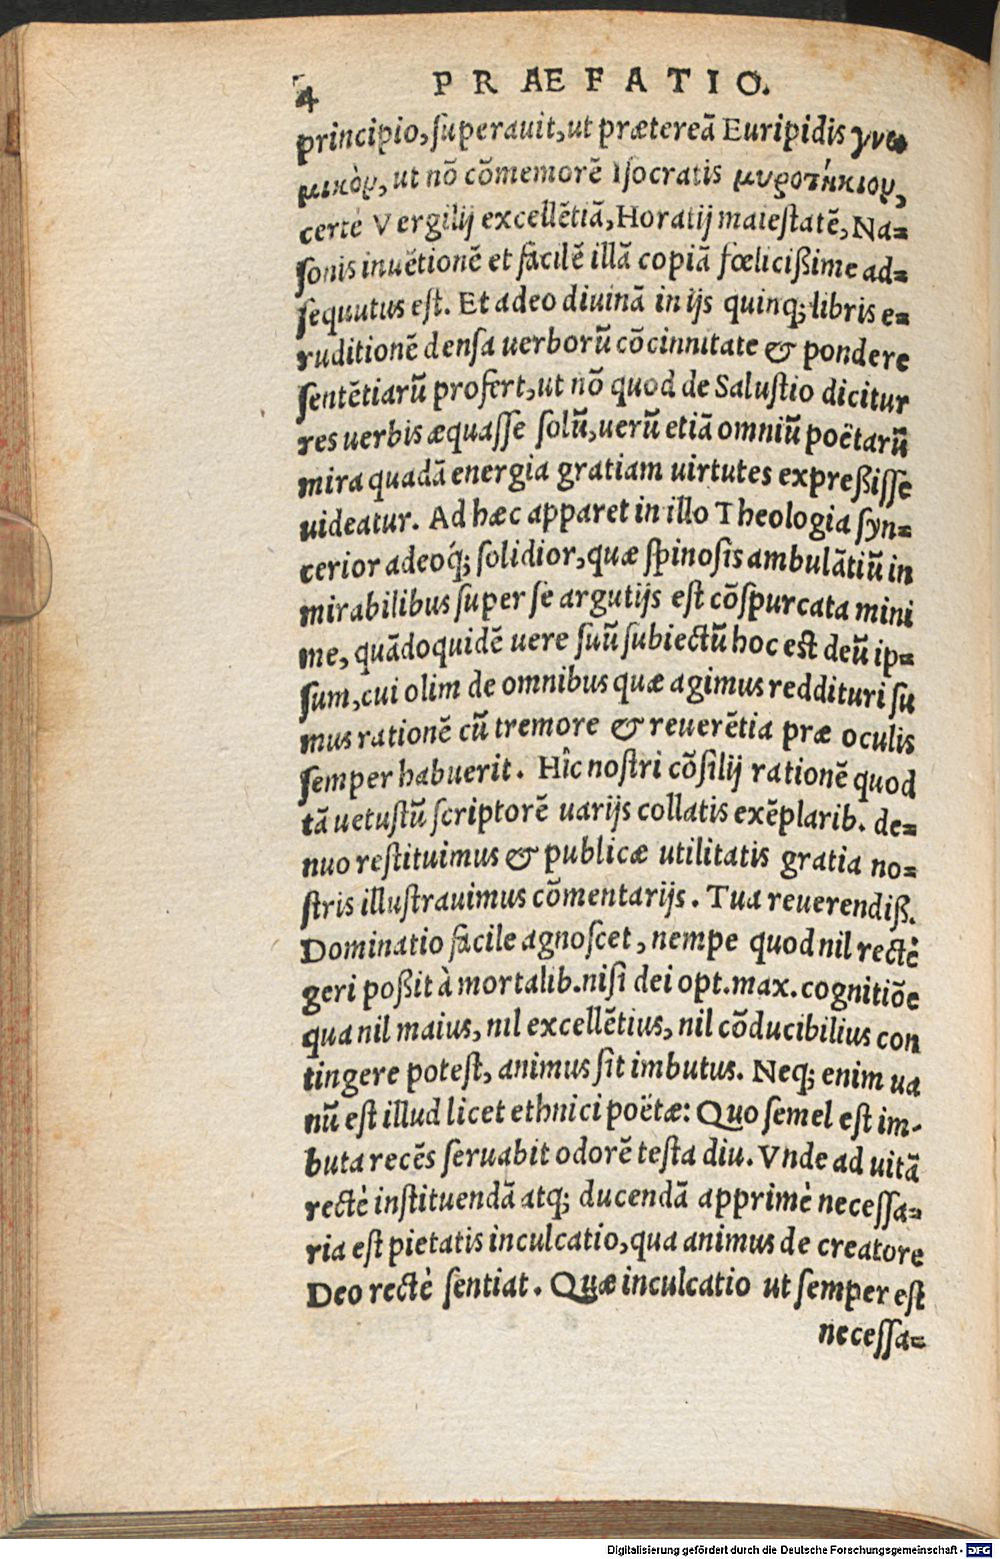 4 PRAEFATIO.
principio, superauit, ut prætereā Euripidis γνω
μικὸν, ut nō cōmemorē Isocratis μυροθήκιον,
certè Vergilij excellētiā, Horatij maiestatē, Na=
sonis inuētionē et facilē illā copiā fœlicißime ad=
sequutus est. Et adeo diuinā in ijs quinq; libris e=
ruditionē densa uerborū cōcinnitate & pondere
sentētiarū profert, ut nō quod de Salustio dicitur
res uerbis æquasse solū, uerū etiā omniū poëtarū
mira quadā energia gratiam uirtutes expreßisse
uideatur. Ad hæc apparet in illo Theologia syn=
cerior adeoq́; solidior, quæ spinosis ambulātiū in
mirabilibus super se argutijs est cōspurcata mini
me, quādoquidē uere suū subiectū hoc est deū ip=
sum, cui olim de omnibus quæ agimus reddituri su
mus rationē cū tremore & reuerētia præ oculis
semper habuerit. Hîc nostri cōsilij rationē quod
tā uetustū scriptorē uarijs collatis exēplarib. de=
nuo restituimus & publicæ utilitatis gratia no=
stris illustrauimus cōmentarijs. Tua reuerendiß.
Dominatio facile agnoscet, nempe quod nil rectè
geri poßit à mortalib. nisi dei opt. max. cognitiōe
qua nil maius, nil excellētius, nil cōducibilius con
tingere potest, animus sit imbutus. Neq; enim ua
nū est illud licet ethnici poëtæ: Quo semel est im-
buta recēs seruabit odorē testa diu. Vnde ad uitā
rectè instituendā atq; ducendā apprimè necessa=
ria est pietatis inculcatio, qua animus de creatore
Deo rectè sentiat. Quæ inculcatio ut semper est
necessa=
Digitalisierung gefördert durch die Deutsche Forschungsgemeinschaft - DFG